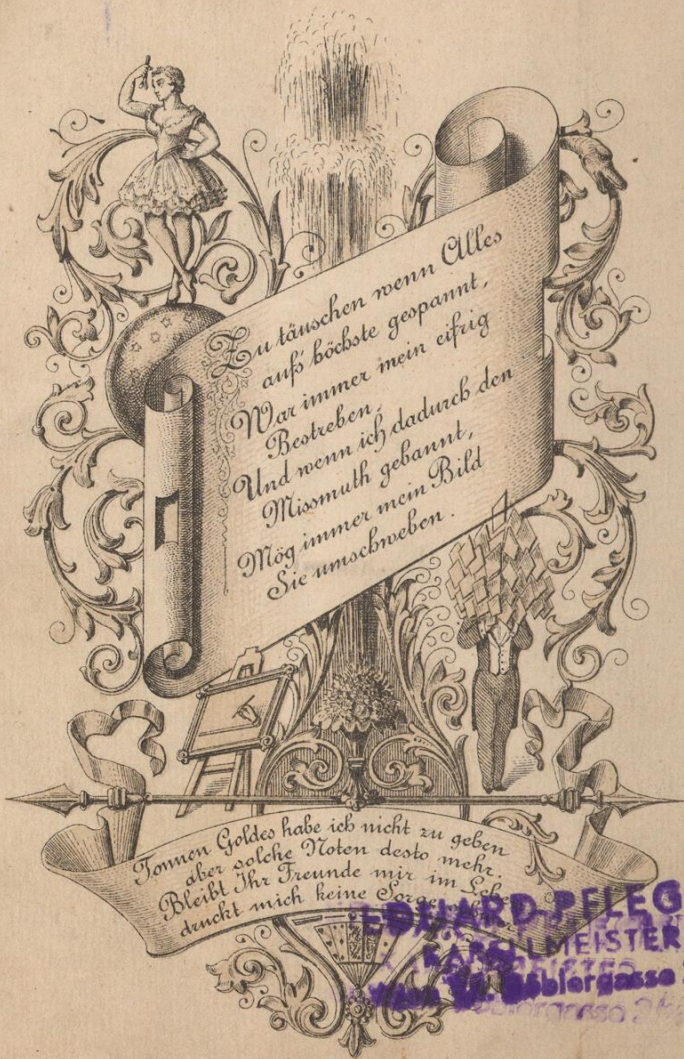 Zu täuschen wenn Alles
aufs höchste gespannt,
War immer mein eifrig
Bestreben,
Und wenn ich dadurch den
Missmuth gebannt,
Mög immer mein Bild
Sie umschweben.
Tonnen Goldes habe ich nicht zu geben
aber solche Noten desto mehr.
Bleibt Ihr Freunde mir im
drückt mich keine
EDUARD PFLEG
KAPELLMEISTER